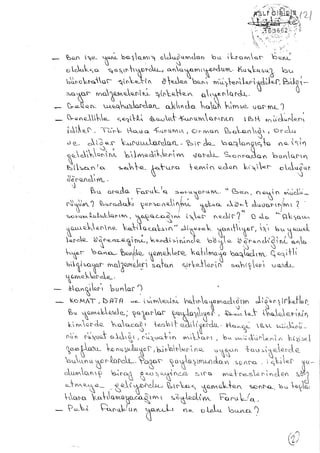 — Ben ise yeni başlamış olduğumdan bu ikramlar beni
oldukça şaşırtıyordu, anlayamıyordum. Kuşkusuz bu
bürokratlar şirketin öteden beri müşterileriydiler. Bilgi-
sayar malzemelerini şirketten alıyorlardı.
— Gelen aklında kalan kimse var mı?
— Genellikle çeşitli devlet kurumlarının IBM müdürleri
idiler. Türk Hava Kurumu, Orman Bakanlığı, Ordu
ve diğer kuruluşlardan. Bir de başlangıçta ne için
geldiklerini bilmediklerim vardı. Sonradan bunların
Bilsan'a sahte fatura temin eden kişiler olduğunu
öğrendim.
Bu arada Faruk'a soruyorum. "Ben, neyin müdü-
rüyüm? Buradaki personelin mi yoksa dört duvarın mı?
yapacağım işler nedir?" O da "Akşam
yemeklerine katılacaksın" diyerek yanıtlıyor, işi bu yemek
lerde öğreneceğimi, kendisinin de böyle öğrendiğini anla
tıyor bana. Bende yemeklere katılmaya başladım. Çeşitli
bilgisayar malzemeleri satan şirketlerin sahipleri vardı
yemeklerde.
— Hangileri bunlar?
— KOMAT, DATA ve ismini hatırlayamadığım diğer şirketler.
Bu yemeklerde, pazarlar paylaşılıyor. Devlet ihalelerinin
kimlerde kalacağı tesbit ediliyordu. Hangi IBM müdürü-
nün rüşvet aldığı, rüşvetin miktarı, bu müdürlerin kişisel
konuşuluyor, birbirlerine uygun tavsiyelerde
bulunuyorlardı. Pazar paylaşımından sonra içkiler yu-
dumlanıp biraz gevşeyince sıra metreslerinden söz
etmeye geliyordu. Birkaç yemekten sonra bu toplan
tılara katılamayacağımı söyledim Faruk'a.
— Peki Faruk'un yanıtı ne oldu buna?
(2)